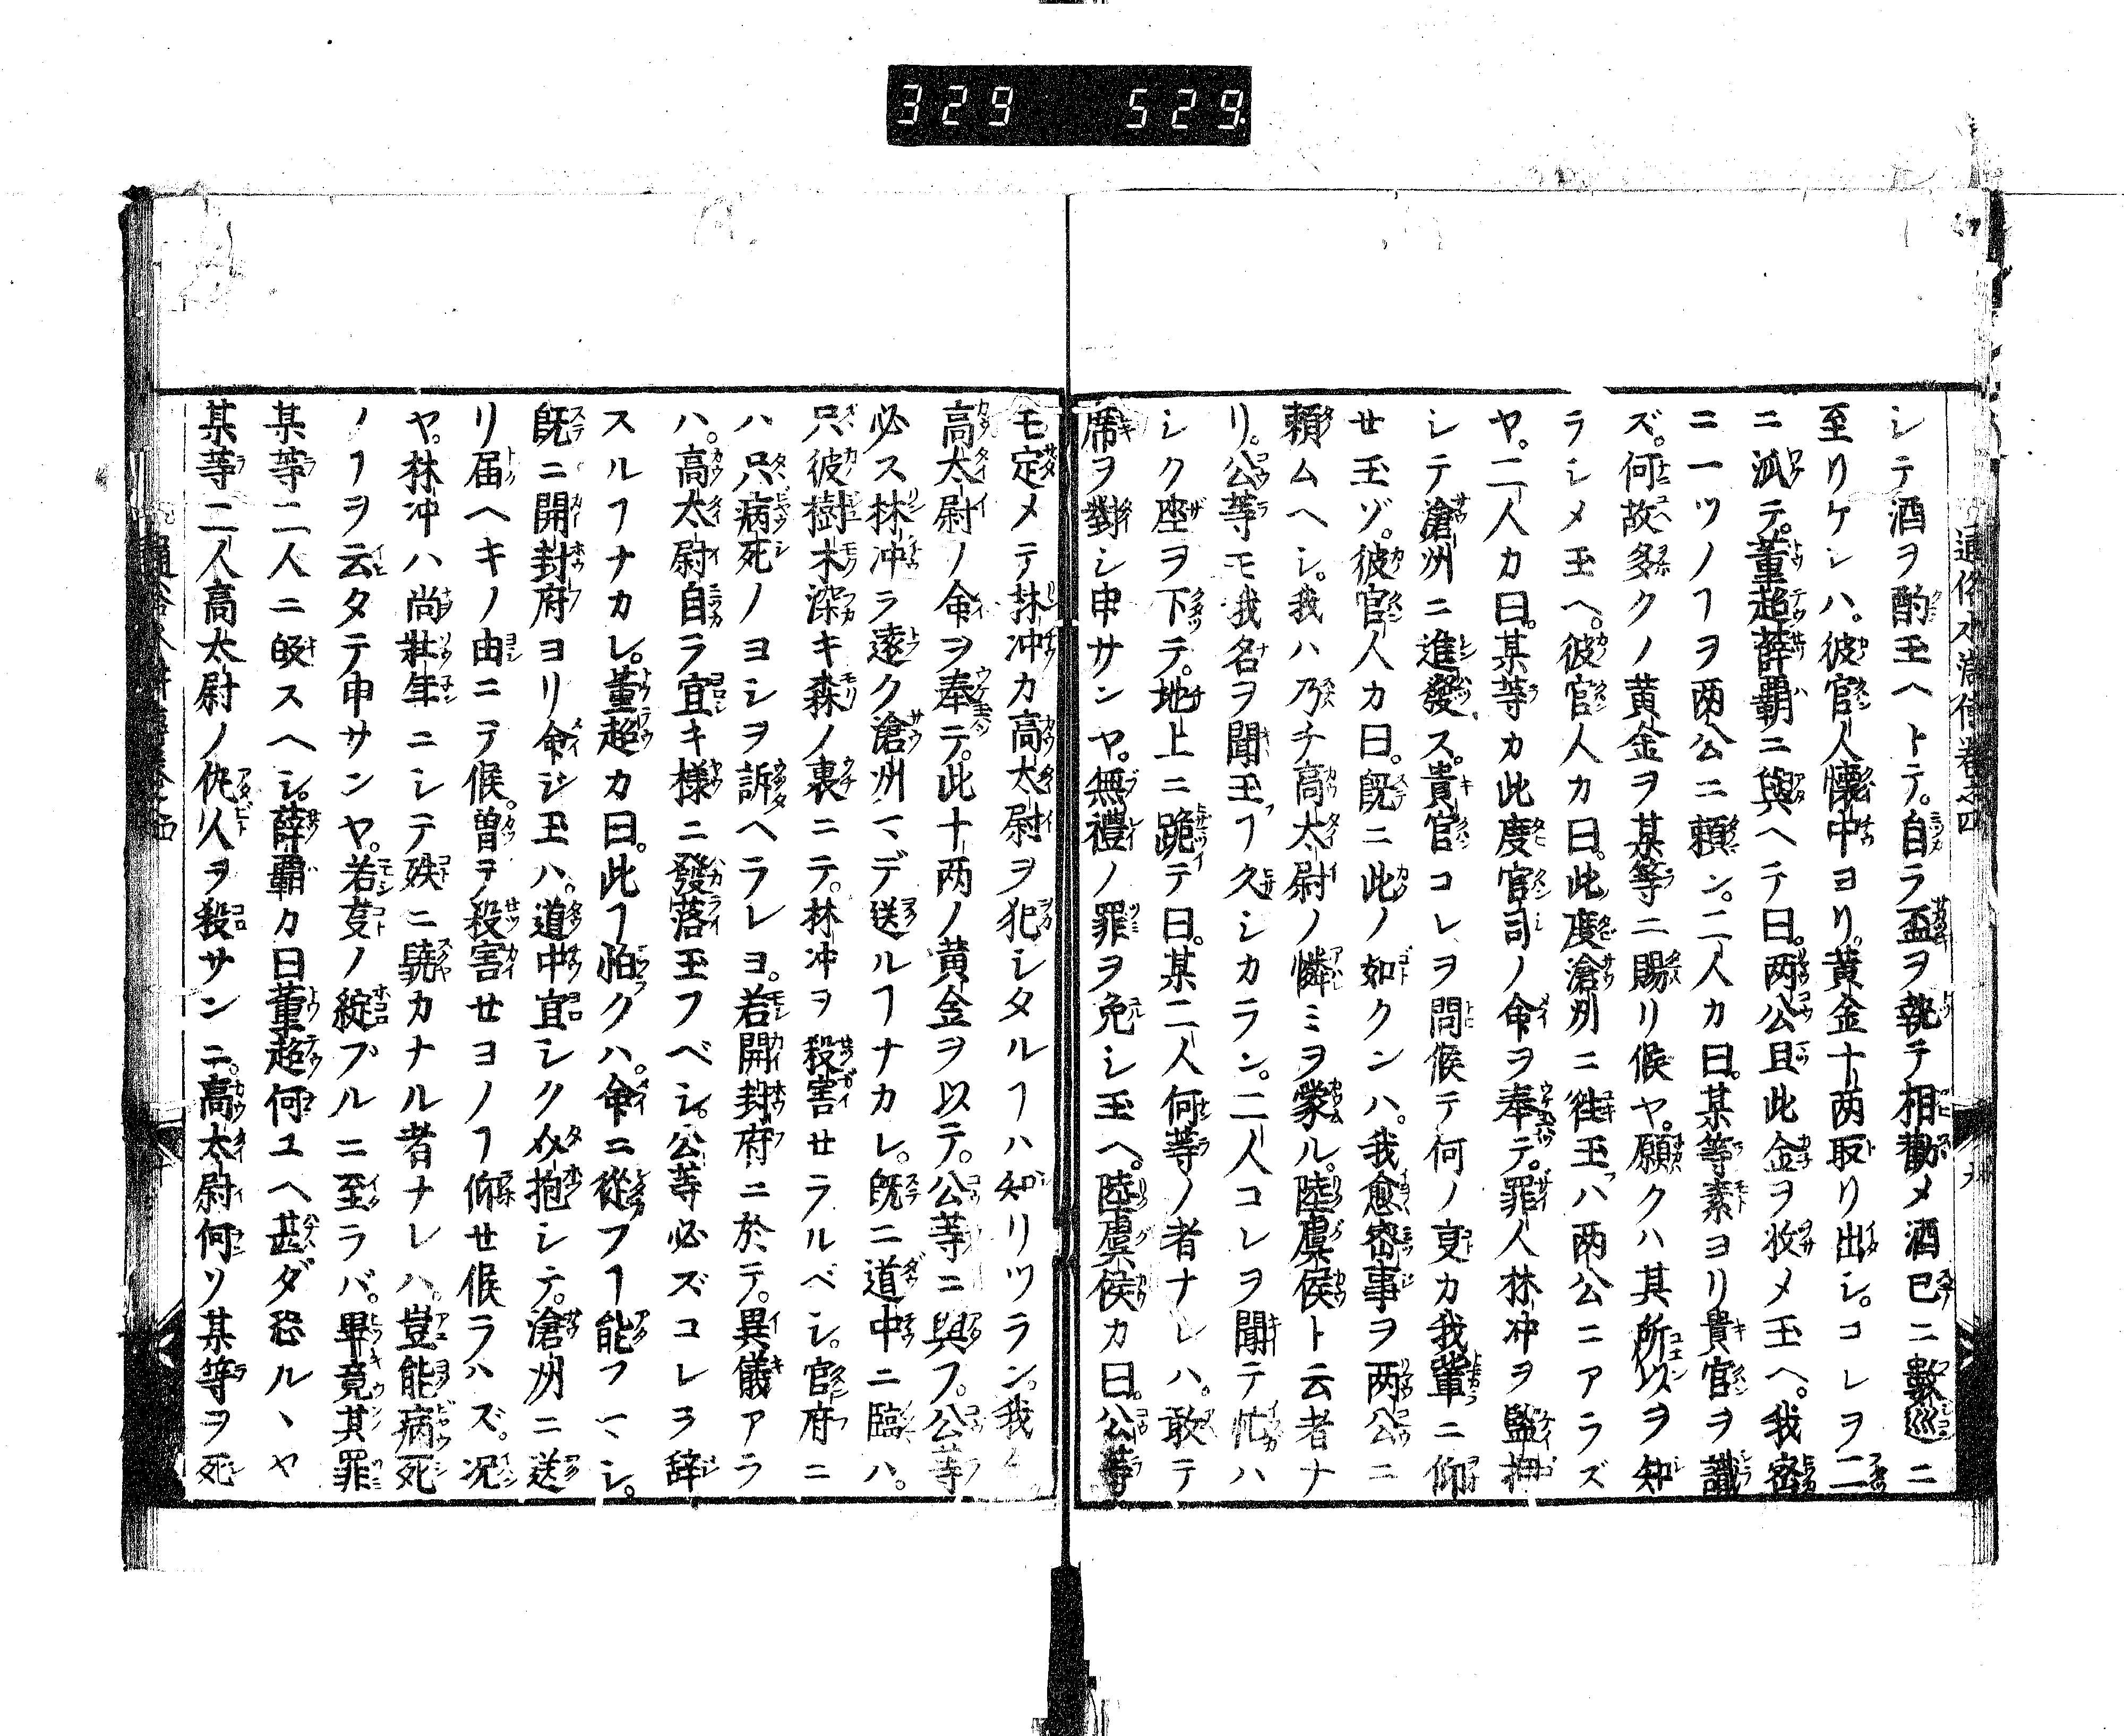 329 529
シテ酒ヲ酌玉ヘトテ。自ラ盃ヲ執テ相勸メ酒已ニ數巡ニ
至リケレハ。彼官人懷中ヨリ。黄金十两取リ出シ。コレヲ二
ニ派テ。董超薛覇ニ與ヘテ曰。两公且此金ヲ收メ玉ヘ。我密
ニ一ツノヿヲ两公ニ頼ン。二人カ曰。某等素ヨリ貴官ヲ識
ズ。何故多クノ黄金ヲ某等ニ賜リ候ヤ。願クハ其所以ヲ知
ラシメ玉ヘ。彼官人カ曰。此度滄州ニ徃玉フハ两公ニアラズ
ヤ。二人カ曰。某等カ此度官司ノ命ヲ奉テ。罪人林冲ヲ監押
シテ滄州ニ進發ス。貴官コレヲ問候テ何ノ㕝カ我輩ニ仰
せ玉ゾ。彼官人カ曰。既ニ此ノ如クンハ。我愈密事ヲ两公ニ
頼ムヘシ。我ハ乃チ高太尉ノ憐ミヲ蒙ル。陸虞侯ト云者ナ
リ。公等モ我名ヲ聞玉フヿ久シカラン。二人コレヲ聞テ忙ハ
シク座ヲ下テ。地上ニ跪テ曰。某二人何等ノ者ナレハ。敢テ
席ヲ對シ申サンヤ。無禮ノ罪ヲ免シ玉ヘ。陸虞侯カ曰。公等
モ定メテ林冲カ高太尉ヲ犯シタルヿハ知リツラン。我今
高太尉ノ命ヲ奉テ。此十两ノ黄金ヲ以テ。公等ニ與フ。公等
必ス林冲ヲ遠ク滄州マデ送ルヿナカレ。既ニ道中ニ臨ハ。
只彼樹木深キ森ノ裏ニテ。林冲ヲ殺害せラルベシ。官府ニ
ハ只病死ノヨシヲ訴ヘラレヨ。若開封府ニ於テ。異儀アラ
ハ。高太尉自ラ宜キ様ニ發落玉フベシ。公等必ズコレヲ辞
スルヿナカレ。董超カ曰。此ヿ怕クハ。命ニ從フヿ能フマシ。
既ニ開封府ヨリ命ジ玉ハ。道中宜シク介抱シテ。滄州ニ送
リ届ヘキノ由ニテ候。曽ヲノ殺害せヨノヿ仰せ候ラハズ。况
ヤ。林冲ハ尚壮年ニシテ殊ニ驍カナル者ナレハ。豈能病死
ノヿヲ云タテ申サンヤ。若㕝ノ綻プルニ至ラバ。畢竟其罪
某等二人ニ皈スヘシ。薛覇カ曰董超何ユヘ甚ダ恐ルヽヤ
某等二人高太尉ノ仇人ヲ殺サンニ。高太尉何ソ某等ヲ死